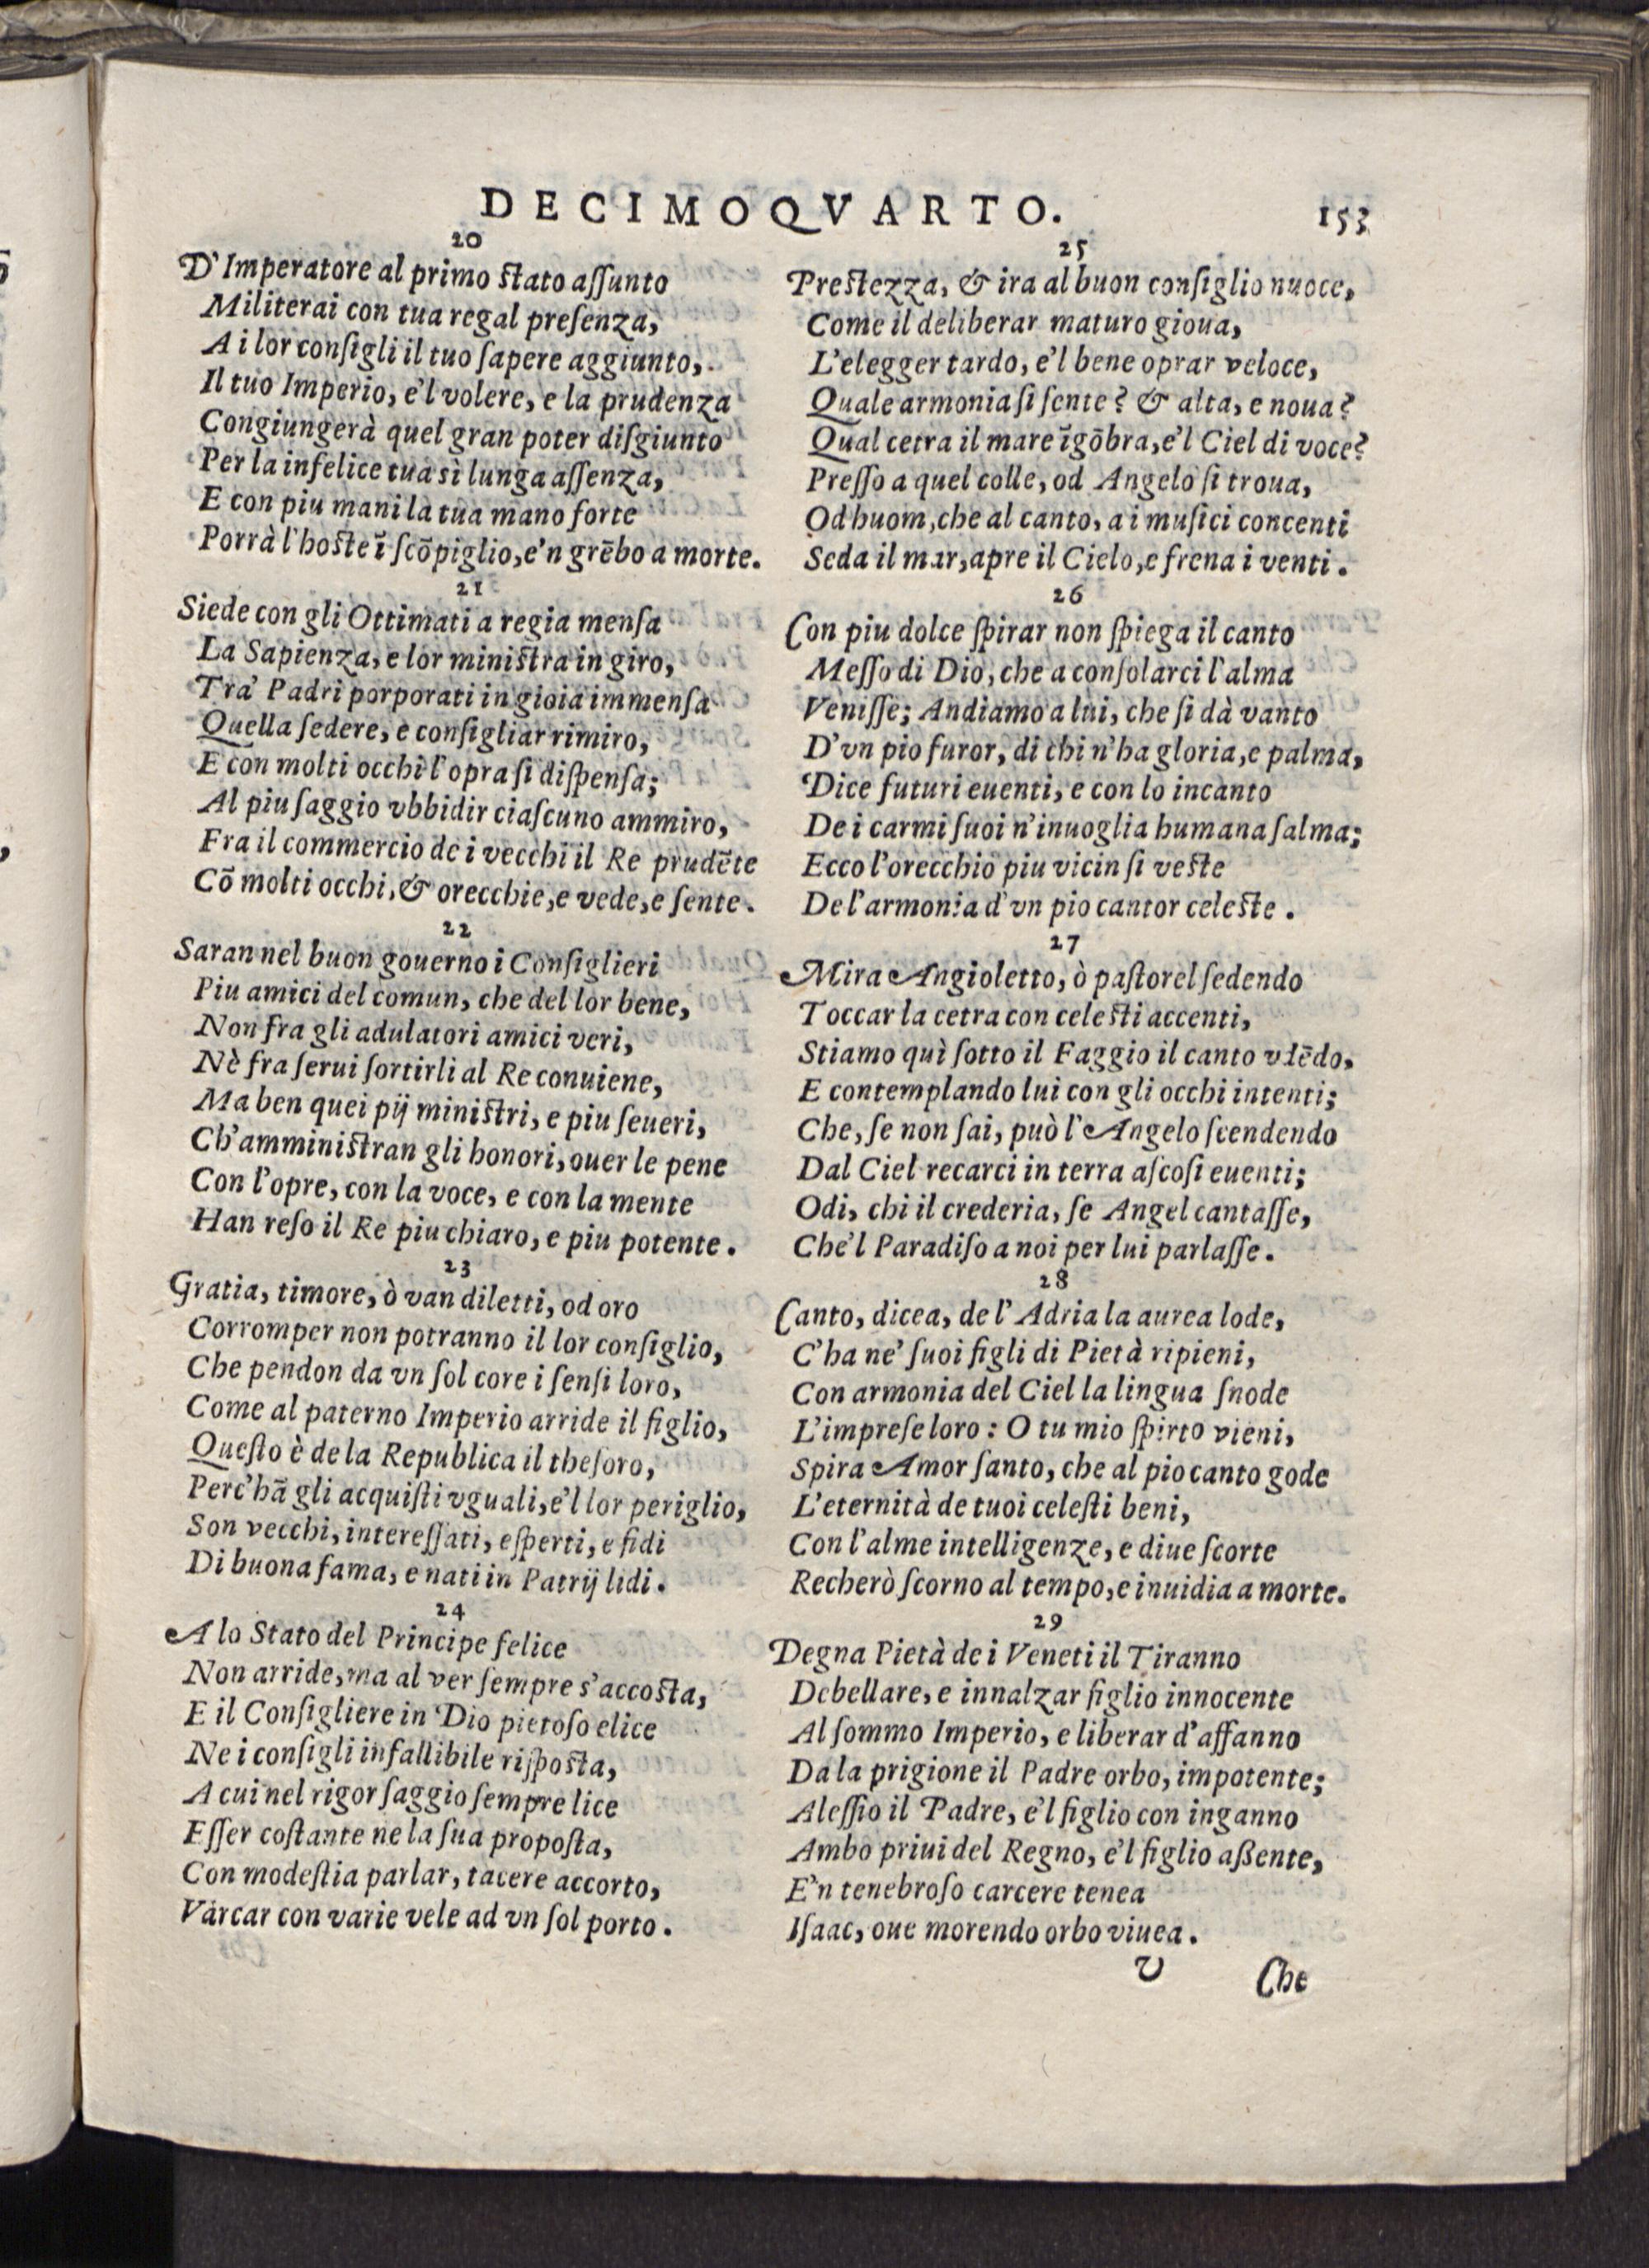 DECIMOQVARTO.
153
20
D'Imperatore al primo ſtato aſſunto
Militerai con tua regal preſenza,
A i lor conſigli il tuo ſapere aggiunto,
Il tuo Imperio, e'l volere, e la prudenza
Congiungerà quel gran poter diſgiunto
Per la infelice tua sì lunga aſſenza,
E con piu mani la tua mano forte
Porrà l'hoſte ĩ ſcõpiglio, e'n grẽbo a morte.
21
Siede con gli Ottimati a regia menſa
La Sapienza, e lor miniſtra in giro,
Tra' Padri porporati in gioia immenſa
Quella ſedere, e conſigliar rimiro,
E con molti occhi l'opra ſi diſpenſa;
Al piu ſaggio vbbidir ciaſcuno ammiro,
Fra il commercio de i vecchi il Re prudẽte
Cõ molti occhi, & orecchie, e vede, e ſente.
22
Saran nel buon gouerno i Conſiglieri
Piu amici del comun, che del lor bene,
Non fra gli adulatori amici veri,
Nè fra ſerui ſortirli al Re conuiene,
Ma ben quei pij miniſtri, e piu ſeueri,
Ch'amminiſtran gli honori, ouer le pene
Con l'opre, con la voce, e con la mente
Han reſo il Re piu chiaro, e piu potente.
23
Gratia, timore, ò van diletti, od oro
Corromper non potranno il lor conſiglio,
Che pendon da vn ſol core i ſenſi loro,
Come al paterno Imperio arride il figlio,
Queſto è de la Republica il theſoro,
Perc'hã gli acquiſti vguali, e'l lor periglio,
Son vecchi, intereſſati, eſperti, e fidi
Di buona fama, e nati in Patrij lidi.
24
A lo Stato del Principe felice
Non arride, ma al ver ſempre s'accoſta,
E il Conſigliere in Dio pietoſo elice
Ne i conſigli infallibile riſpoſta,
A cui nel rigor ſaggio ſempre lice
Eſſer coſtante ne la ſua propoſta,
Con modeſtia parlar, tacere accorto,
Varcar con varie vele ad vn ſol porto.
25
Preſtezza, & ira al buon conſiglio nuoce,
Come il deliberar maturo gioua,
L'elegger tardo, e'l bene oprar veloce,
Quale armonia ſi ſente? & alta, e noua?
Qual cetra il mare ĩgõbra, e'l Ciel di voce?
Preſſo a quel colle, od Angelo ſi troua,
Od huom, che al canto, a i muſici concenti
Seda il mar, apre il Cielo, e frena i venti.
26
Con piu dolce ſpirar non ſpiega il canto
Meſſo di Dio, che a conſolarci l'alma
Veniſſe; Andiamo a lui, che ſi dà vanto
D'vn pio furor, di chi n'ha gloria, e palma,
Dice futuri euenti, e con lo incanto
De i carmi ſuoi n'inuoglia humana ſalma;
Ecco l'orecchio piu vicin ſi veſte
De l'armonia d'vn pio cantor celeſte.
27
Mira Angioletto, ò paſtorel ſedendo
Toccar la cetra con celeſti accenti,
Stiamo quì ſotto il Faggio il canto vdẽdo,
E contemplando lui con gli occhi intenti;
Che, ſe non ſai, può l'Angelo ſcendendo
Dal Ciel recarci in terra aſcoſi euenti;
Odi, chi il crederia, ſe Angel cantaſſe,
Che'l Paradiſo a noi per lui parlaſſe.
28
Canto, dicea, de l'Adria la aurea lode,
C'ha ne' ſuoi figli di Pietà ripieni,
Con armonia del Ciel la lingua ſnode
L'impreſe loro: O tu mio ſpirto vieni,
Spira Amor ſanto, che al pio canto gode
L'eternità de tuoi celeſti beni,
Con l'alme intelligenze, e diue ſcorte
Recherò ſcorno al tempo, e inuidia a morte.
29
Degna Pietà de i Veneti il Tiranno
Debellare, e innalzar figlio innocente
Al ſommo Imperio, e liberar d'affanno
Da la prigione il Padre orbo, impotente;
Aleſſio il Padre, e'l figlio con inganno
Ambo priui del Regno, e'l figlio aßente,
E'n tenebroſo carcere tenea
Iſaac, oue morendo orbo viuea.
V
Che